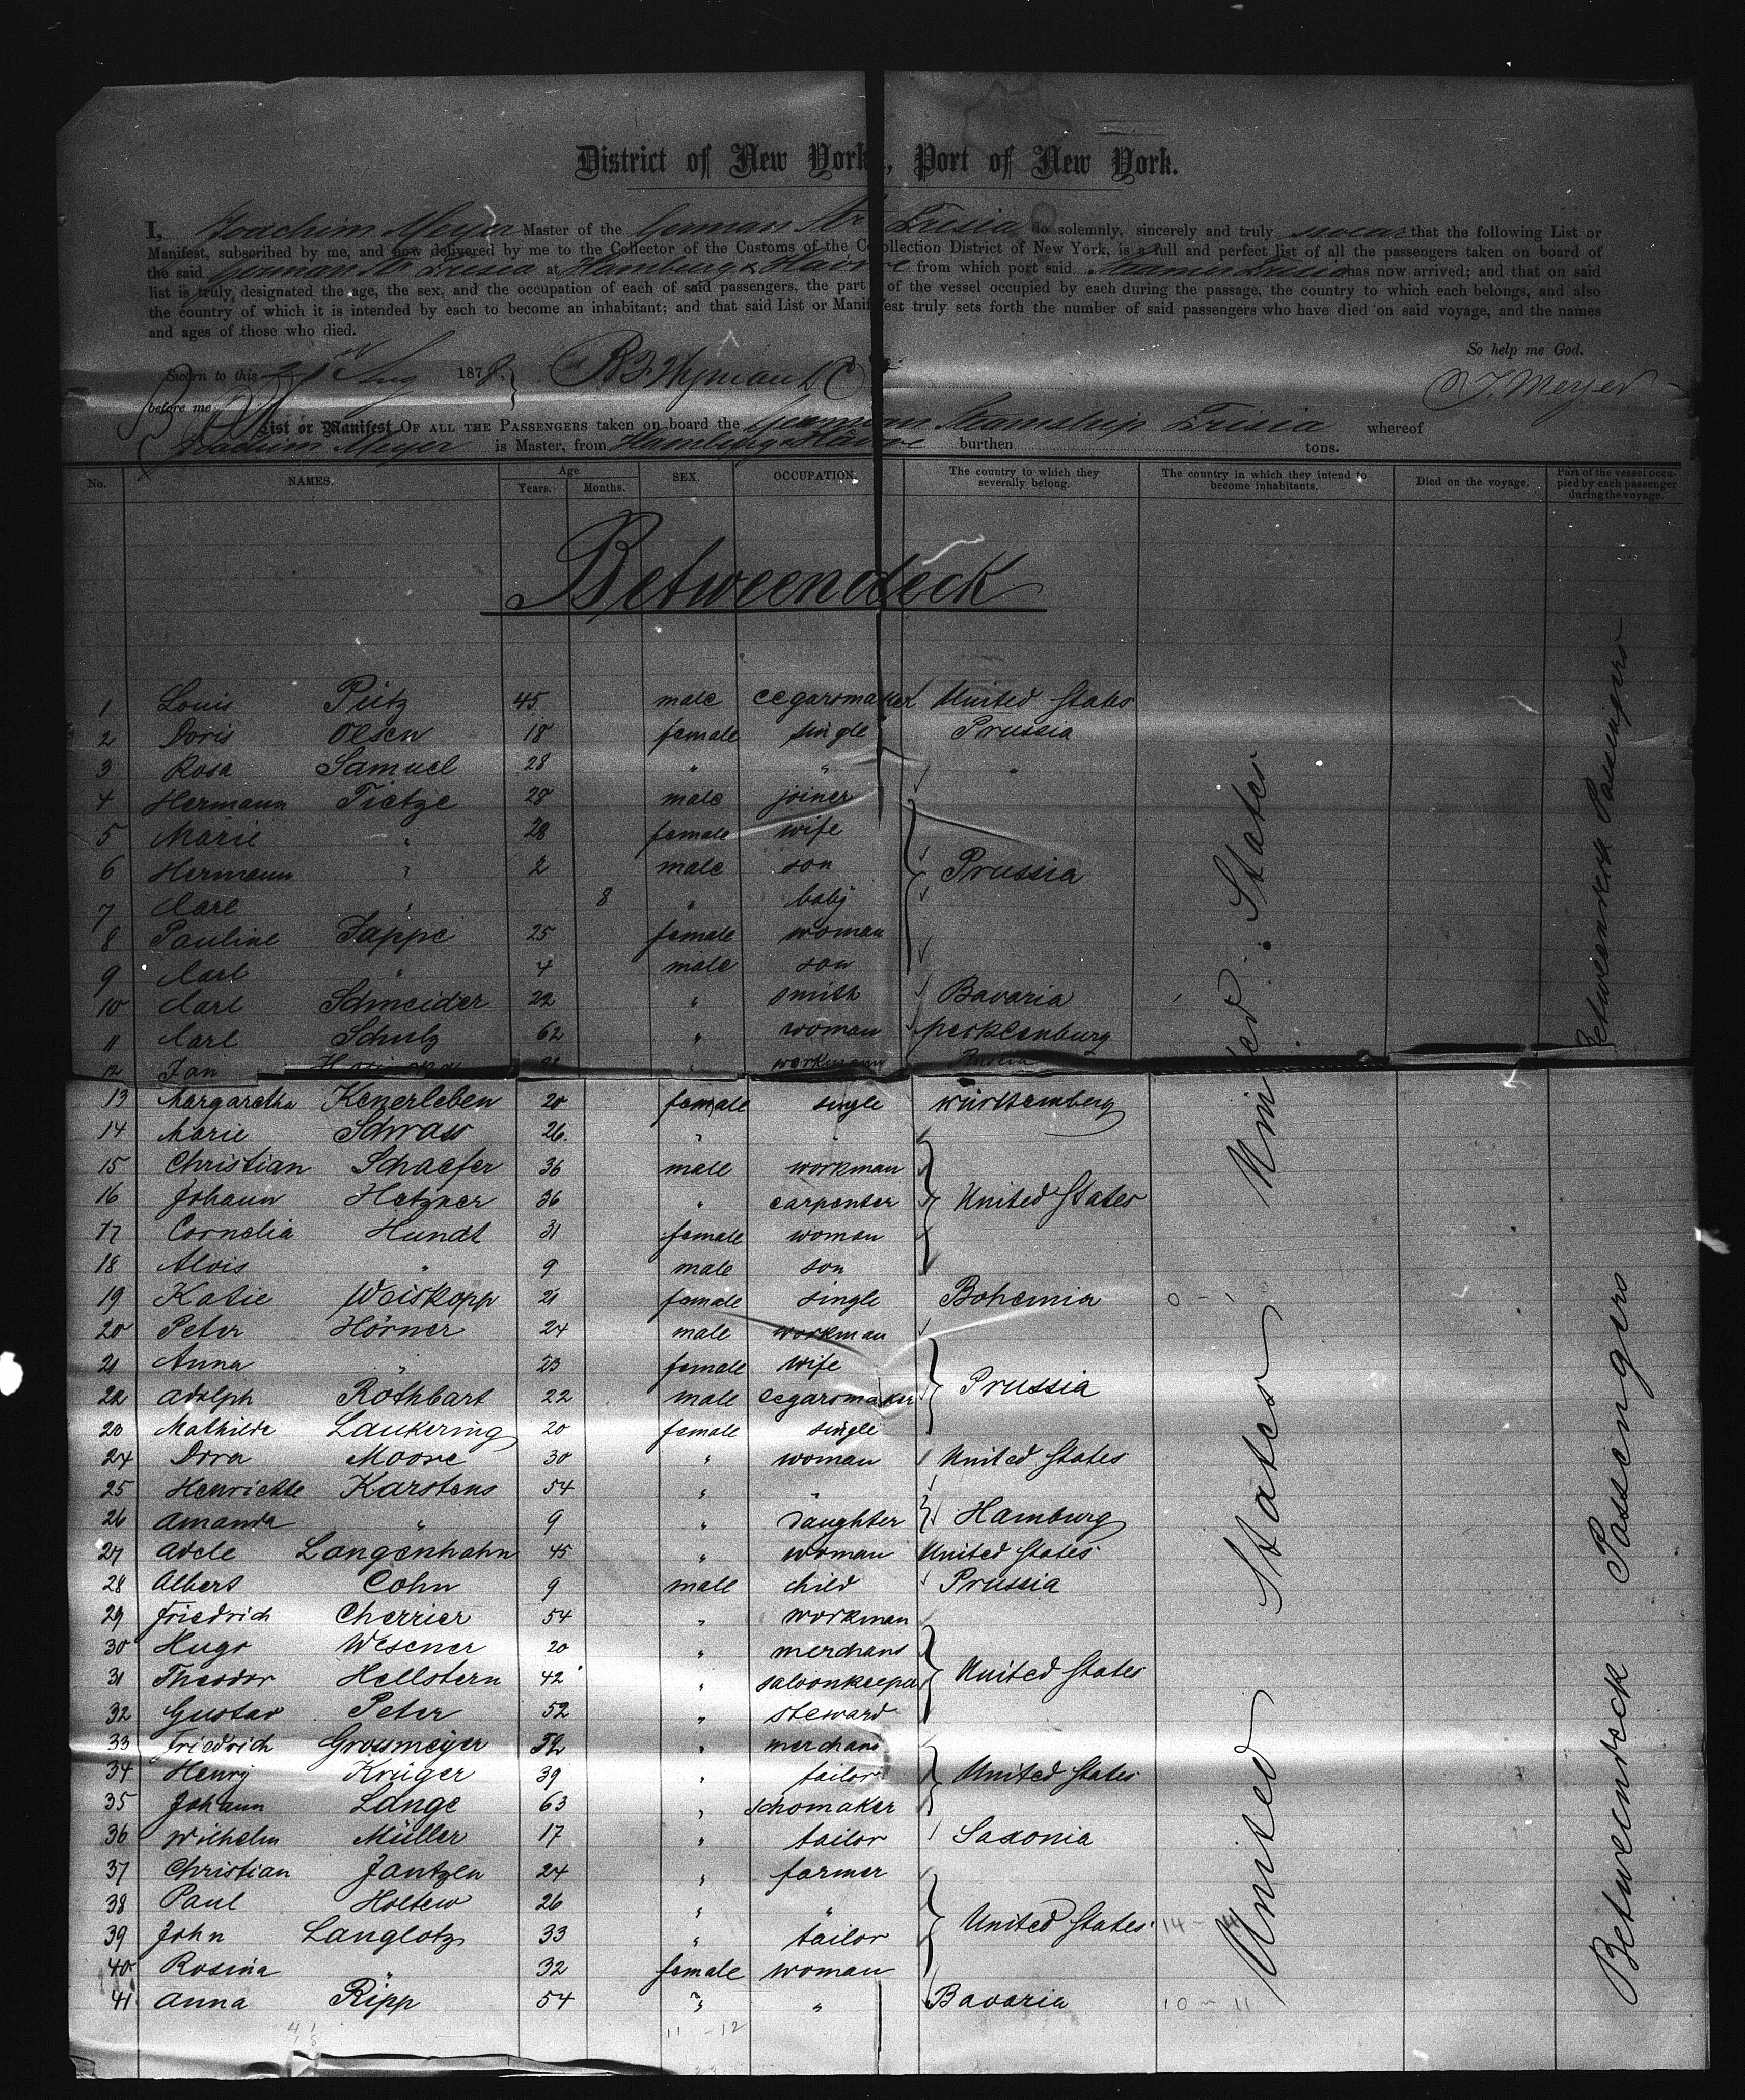 District of New York, Port of New York.
I, Joachim Meyer Master of the German Str Frisia do solemnly, sincerely and truly swear that the following List or
Manifest, subscribed by me, and now delivered by me to the Collector of the Customs of the Collection District of New York, is a full and perfect list of all the passengers taken on board of
the said German Str Frisia at Hamburg & Havre from which port said Steamer Frisia has now arrived; and that on said
list is truly designated the age, the sex, and the occupation of each of said passengers, the part of the vessel occupied by each during the passage, the country to which each belongs, and also
the country of which it is intended by each to become an inhabitant; and that said List or Manifest truly sets forth the number of said passengers who have died on said voyage, and the names
and ages of those who died.
So help me God.
Sworn to this Aug 1878
J. Meyer
before me
List or Manifest OF ALL THE PASSENGERS taken on board the German Steamship Frisia whereof
Joachim Meyer is Master, from Hamburg & Havre burthen tons.
No. NAMES. Age Years. Months. SEX. OCCUPATION. The country to which they severally belong. The country in which they intend to become inhabitants. Died on the voyage. Part of the vessel occupied by each passenger during the voyage.
Betweendeck
1 Louis Pütz 45 male cegarsmaker United States
2 Doris Olsen 18 female single Prussia
3 Rosa Samuel 28 " " "
4 Hermann Tietze 28 male joiner
5 Marie " 28 female wife
6 Hermann " 2 male son Prussia
7 Carl " 8 " baby
8 Pauline Jappe 25 female woman
9 Carl " 4 male son
10 Carl Schneider 22 " smith Bavaria
11 Carl Schulz 62 " woman Mecklenburg
12 Jan workmann
13 Margaretha Kenerleben 20 female single Württemberg
14 Marie Schwass 26. " "
15 Christian Schaefer 36 male workman
16 Johann Hetzner 36 " carpenter United States
17 Cornelia Hundt 31 female woman
18 Alois " 9 male son
19 Katie Weiskopp 21 female single Bohemia
20 Peter Hörner 24 male workman
21 Anna " 23 female wife
22 Adolph Rothbart 22 male cegarsmaker Prussia
20 Mathilde Laukering 20 female single
24 Dora Moore 30 " woman United States
25 Henriette Karstens 54 " "
26 Amanda " 9 " daughter Hamburg
27 Adele Langenhahn 45 " woman United States
28 Albert Cohn 9 male child Prussia
29 Friedrich Cherrier 54 " workman
30 Hugo Wesener 20 " merchant
31 Theodor Hellstern 42 " saloonkeeper United States
32 Gustav Peter 52 " steward
33 Friedrich Grossmeyer 52 " merchant
34 Henry Krüger 39 " tailor United States
35 Johann Lange 63 " schomaker
36 Wilhelm Müller 17 " tailor Saxonia
37 Christian Jantzen 24 " farmer
38 Paul Holtew 26 " "
39 John Langlotz 33 " tailor United States 14 - 4
40 Rosina " 32 female woman
41 Anna Ripp 54 " " Bavaria 10 - 11
11 - 12
United States
United States
Betweendeck Passengers
Betweendeck Passengers